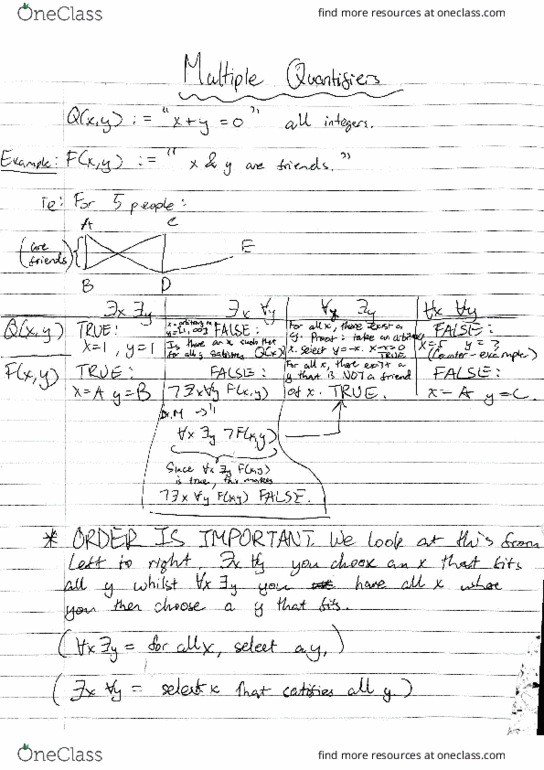 OneClass
find more resources at oneclass.com
Multiple Quantifiers
Q(x,y) := "x+y=0" all integers.
Example: F(x,y) := " x & y are friends."
ie: For 5 people:
A C
(are friends) E
B D
∃x ∃y ∃x ∀y ∀x ∃y ∀x ∀y
Q(x,y) TRUE: x=1, y=1
FALSE: Is there an x such that for all y satisfies Q(x,y)
For all x, there exist a y. Proof: take an arbitrary x. select y=-x. x-x=0 TRUE
FALSE: x=5 y=3 (Counter-example)
F(x,y) TRUE: x=A y=B
FALSE: ¬∃x∀y F(x,y)
For all x, there exist a y that is NOT a friend of x. TRUE.
FALSE: x-A y=C.
D.M → "
∀x ∃y ¬F(x,y)
Since ∀x ∃y F(x,y)
is true, this makes
¬∃x ∀y F(x,y) FALSE.
* ORDER IS IMPORTANT. We look at this from
left to right. ∃x ∀y you choose an x that fits
all y whilst ∀x ∃y you have all x where
you then choose a y that fits.
(∀x ∃y = for all x, select a y,)
(∃x ∀y = select x that satisfies all y.)
OneClass
find more resources at oneclass.com